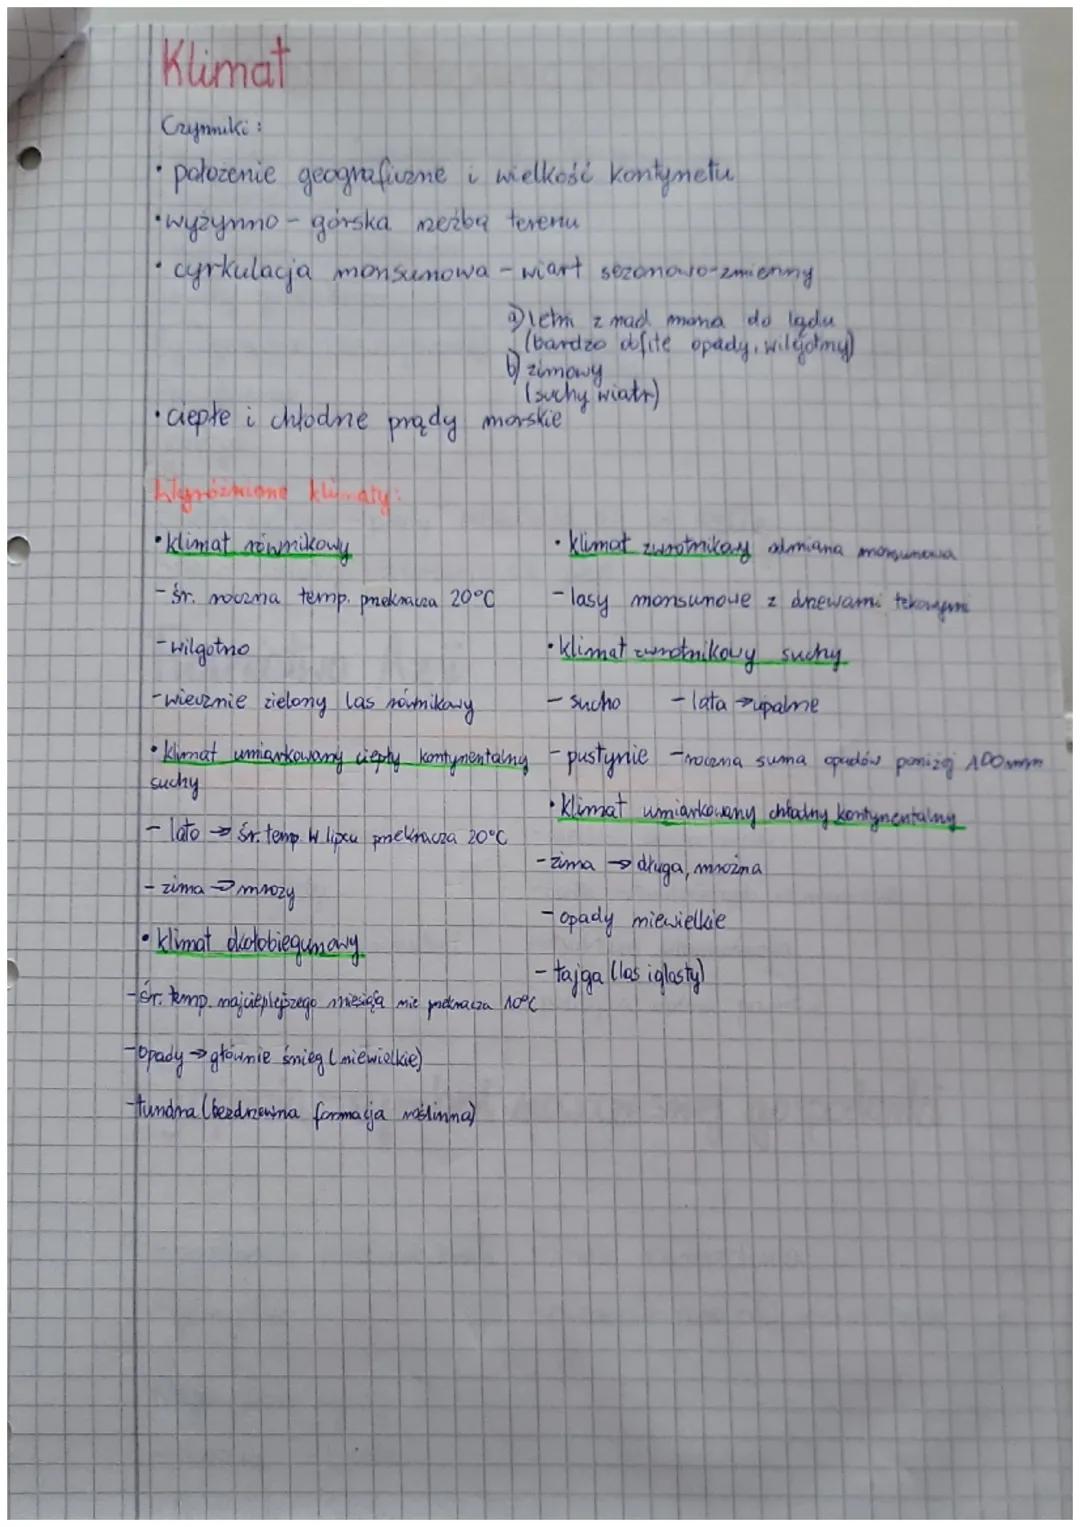 Klimat
Czynniki:
• położenie geograficzne i wielkość kontynetu
• wyżynno-górska rzeźba terenu
• cyrkulacja monsunowa - wiart sezonowo-zmienny
a) letni z nad morza do lądu
(bardzo obfite opady, wilgotny)
b) zimowy
(suchy wiatr)
• ciepłe i chłodne prądy morskie
Wyróżnione klimaty:
• klimat równikowy
- śr. roczna temp. przekracza 20°C
- wilgotno
- wiecznie zielony las równikowy
• klimat umiarkowany ciepły kontynentalny
suchy
- lato → śr. temp. w lipcu przekracza 20°C
- zima → mrozy
• klimat okołobiegunowy
- śr. temp. najcieplejszego miesiąca nie przekracza 10°C
- opady → głównie śnieg (niewielkie)
- tundra (bezdrzewna formacja roślinna)
• klimat zwrotnikowy odmiana monsunowa
- lasy monsunowe z drzewami tekowymi
• klimat zwrotnikowy suchy
- sucho - lata → upalne
- pustynie - roczna suma opadów poniżej 100mm
• klimat umiarkowany chłodny kontynentalny
- zima → długa, mroźna
- opady niewielkie
- tajga (las iglasty)